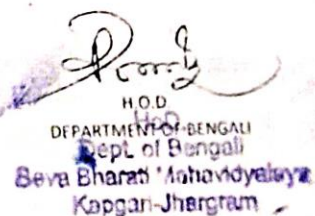 H.O.D.
HoD
DEPARTMENT OF BENGALI
Dept. of Bengali
Seva Bharati Mahavidyalaya
Kapgari-Jhargram